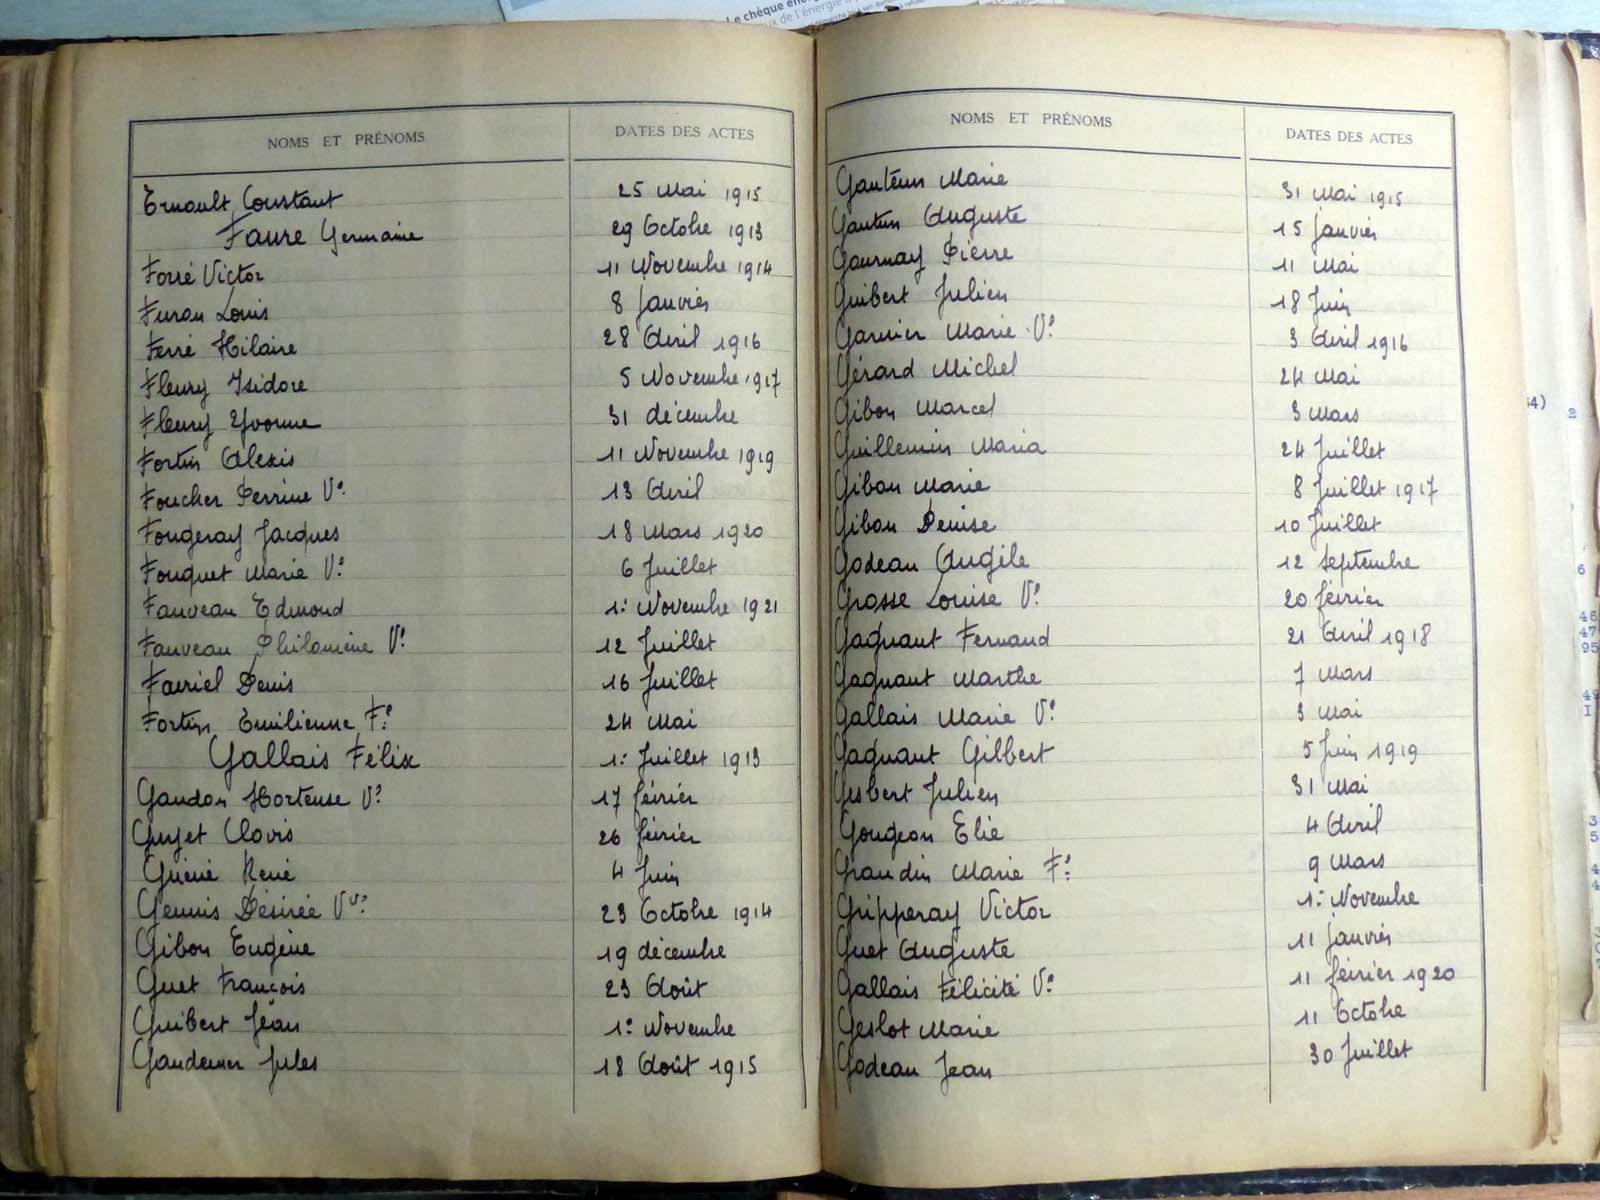 Le chèque éner
ux de l'énergie
NOMS ET PRÉNOMS DATES DES ACTES
Ernoult Constant 25 Mai 1915
Faure Germaine 29 Octobre 1913
Forré Victor 11 Novembre 1914
Furon Louis 8 janvier
Ferré Hilaire 28 Avril 1916
Fleury Isidore 5 Novembre 1917
Fleury Yvonne 31 décembre
Fortin Alexis 11 Novembre 1919
Foucher Perrine Ve 13 Avril
Fougeray Jacques 18 Mars 1920
Fouquet Marie Ve 6 Juillet
Fauveau Edmond 1er Novembre 1921
Fauveau Philomène Ve 12 Juillet
Fauriel Denis 16 Juillet
Fortin Emilienne Fe 24 Mai
Gallais Félix 1er Juillet 1913
Gaudon Hortense Ve 17 février
Guyet Clovis 26 février
Guéné René 4 Juin
Gennis Désirée Vve 23 Octobre 1914
Gibon Eugène 19 décembre
Guet François 23 Août
Guibert Jean 1er Novembre
Gaudemer Jules 18 Août 1915
NOMS ET PRÉNOMS DATES DES ACTES
Marie 31 Mai 1915
Auguste 15 janvier
Gournay Pierre 11 Mai
Guibert Julien 18 Juin
Garnier Marie Ve 3 Avril 1916
Gérard Michel 24 Mai
Gibon Marcel 3 Mars
Guillemin Maria 24 Juillet
Gibon Marie 8 Juillet 1917
Gibon Denise 10 Juillet
Godeau Angèle 12 Septembre
Grosse Louise Ve 20 février
Gagnant Fernand 21 Avril 1918
Gagnant Marthe 7 Mars
Gallais Marie Ve 3 Mai
Gagnant Gilbert 5 Juin 1919
Gesbert Julien 31 Mai
Gougeon Elie 4 Avril
Grandin Marie Fe 9 Mars
Gripperay Victor 1er Novembre
Guet Auguste 11 janvier
Gallais Félicité Ve 11 février 1920
Geslot Marie 11 Octobre
Godeau Jean 30 Juillet